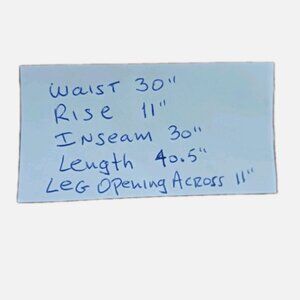 Waist 30"
Rise 11"
Inseam 30"
Length 40.5"
Leg Opening Across 11"